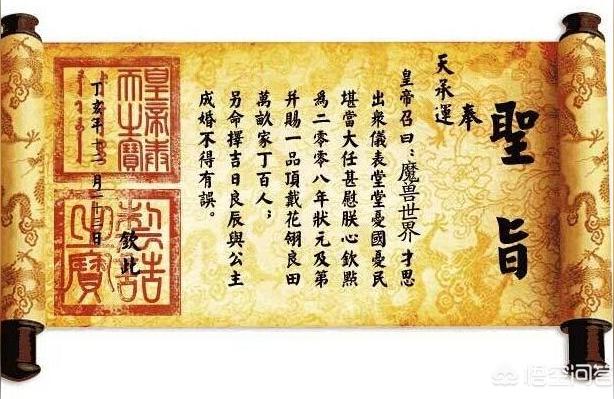 聖旨
奉
天承運
皇帝召曰：魔兽世界才思
出眾儀表堂堂憂國憂民
堪當大任甚慰朕心欽點
為二零零八年狀元及第
并賜一品頂戴花翎良田
萬畝家丁百人；
另命擇吉日良辰與公主
成婚不得有誤。
欽此
丁亥年
月
日
皇帝奉
天之寶
制誥
之寶
悟空问答